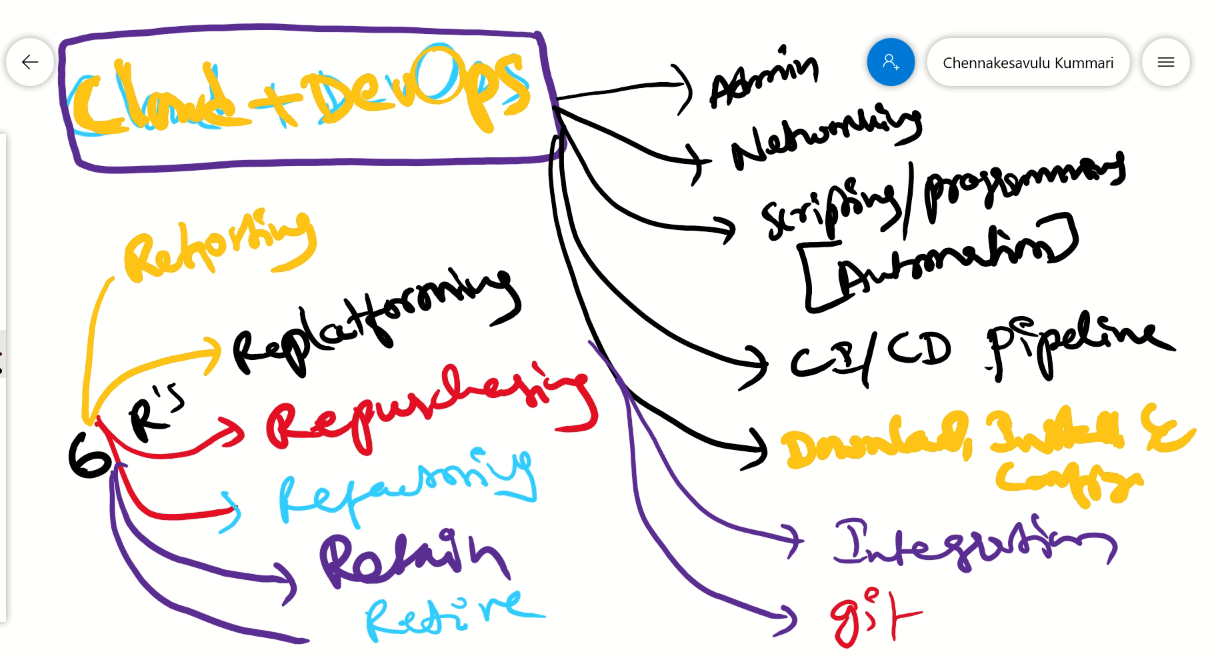 Cloud + DevOps
Chennakesavulu Kummari
Admin
Networking
Scripting/programming
[Automation]
CI/CD Pipeline
Download, Install &
Config
Integration
git
6 R's
Rehosting
Replatforming
Repurchasing
Refactoring
Retain
Retire